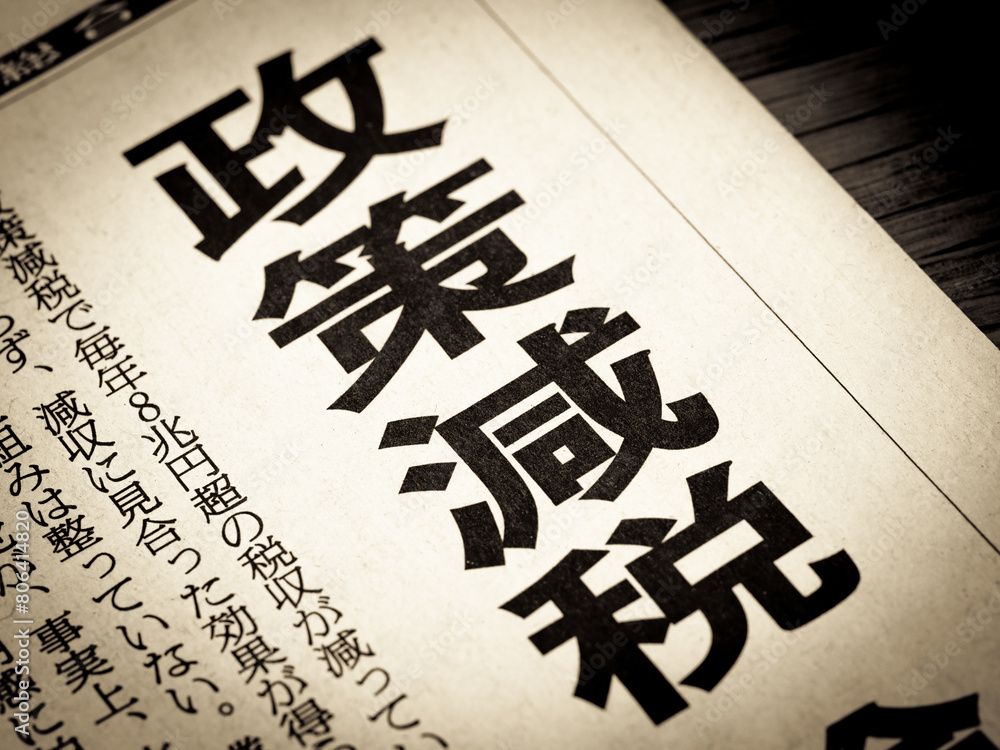 総合
政策減税
策減税で毎年8兆円超の税収が減ってい
ず、減収に見合った効果が得
組みは整っていない。
事実上、
Adobe Stock | #806414820